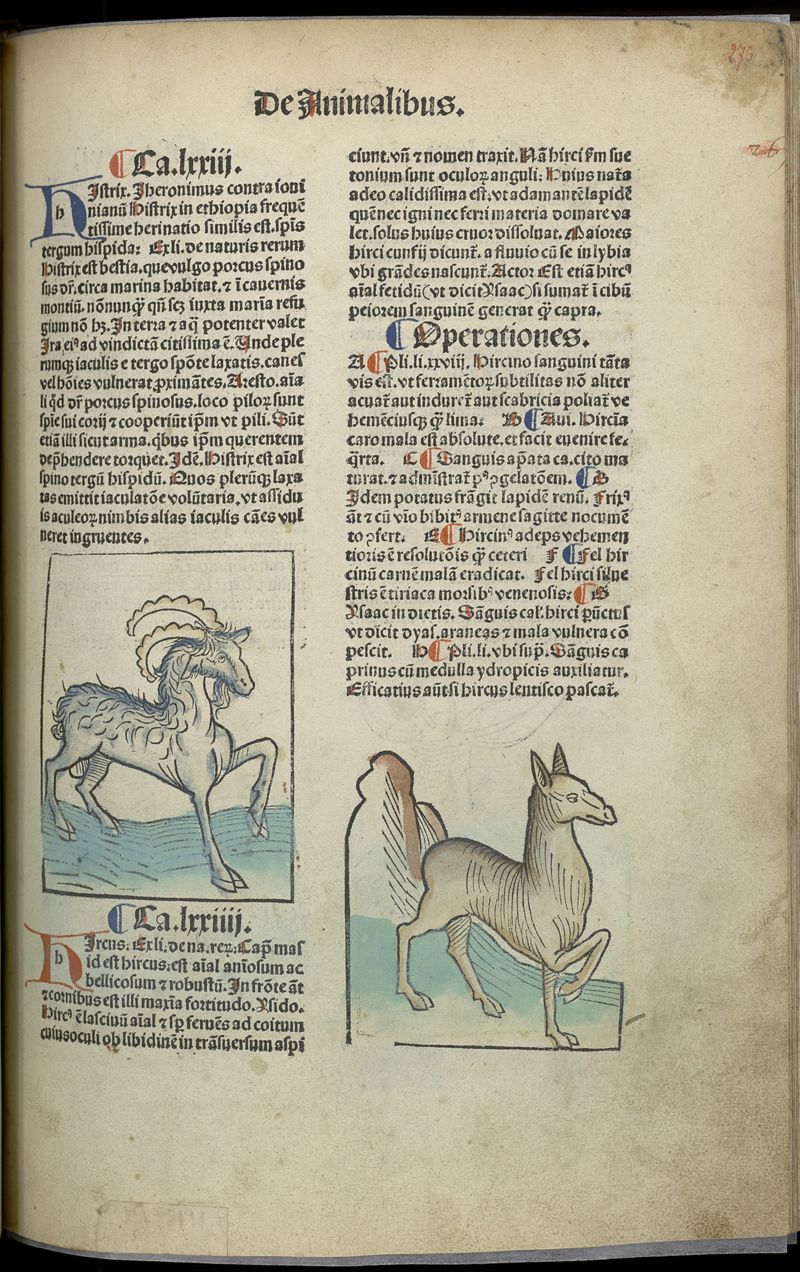 276
De Animalibus.
26
¶Ca.lxxiij.
hIstrix. Iheronimus contra ioui
nianū Histrix in ethiopia frequē
tissime herinatio similis est.spīs
tergum hispida: Ex li. de naturis rerum
Histrix est bestia. que vulgo porcus spino
sus dr̄. circa marina habitat. ⁊ ī cauernis
montiū. nōnunq̄ȝ qn̄ scȝ iuxta maria refu
gium nō hȝ. In terra ⁊ aq̄ potenter valet
Ira eiꝰ ad vindictā citissima ē. Unde ple
rumqȝ iaculis e tergo spōte laxatis. canes
vel hōies vulnerat ꝓximātes. Aresto. aīa
li q̄d dr̄ porcus spinosus. loco piloꝝ sunt
spīe sui corij ⁊ cooperiūt ip̄m vt pili. Sūt
etiā illi sicut arma. q̄bus ip̄m querentem
dep̄hendere torquet. Idē. Histrix est aīal
spino tergū hispidū. Quos plerūqȝ laxa
tas emittit iaculatōe volūtaria. vt assidu
is aculeoꝝ nimbis alias iaculis cāes vul
neret ingruentes.
¶Ca.lxxiiij.
hIrcus. Ex li. de na. reꝝ: Cap̄ mas
id est hircus. est aīal aīosum ac
bellicosum ⁊ robustū. In frōte āt
⁊ cornibus est illi maxīa fortitudo. Ysido.
Hircꝰ ē lasciuū aīal ⁊ sp̄ feruēs ad coitum
cuius oculi ob libidinē in trāsuersum aspi
ciunt. vn̄ ⁊ nomen traxit. Nā hirci fm sue
tonium sunt oculoꝝ anguli: Huius nat̄a
adeo calidissima est. vt adamantē lapidē
quē nec igni nec ferri materia domare va
let. solus huius cruor dissoluat. Maiores
hirci cunfij dicunt̄. a fluuio cū se in lybia
vbi grādes nascunt̄. Actor Est etiā hircꝰ
aīal fetidū(vt dicit Ysaac)si sumat̄ ī cibū
peiorem sanguinē generat q̄ȝ capra.
¶Operationes.
A ¶Pli. li. xxviij. Hircino sanguini tāta
vis est. vt ferramētoꝝ subtilitas nō aliter
acuat̄ aut induret̄ aut scabricia poliat̄ ve
hemēciusqȝ q̄ȝ lima. B ¶Aui. Hircīa
caro mala est absolute. et facit euenire fe.
q̄rta. C ¶Sanguis ap̄ata ca. cito ma
turat. ⁊ admīstrat̄ pꝰ ꝯgelatōem. ¶D
Idem potatus frāgit lapidē renū. Frixꝰ
āt ⁊ cū vīo bibitꝰ armene sagitte nocumē
to ꝓfert. E ¶Hircinꝰ adeps vehemen
tioris ē resolutōis q̄ȝ ceteri F ¶Fel hir
cinū carnē malā eradicat. Fel hirci silue
stris ē tiriaca morsibꝰ venenosis: ¶G
Ysaac in dietis. Sāguis cal. hirci p̄ūctus
vt dicit dyas. araneas ⁊ mala vulnera cō
pescit. H ¶Pli. li. vbi sup̄. Sāguis ca
prinus cū medulla ydropicis auxiliatur.
Efficatius aūt si hircus lentisco pascat̄.